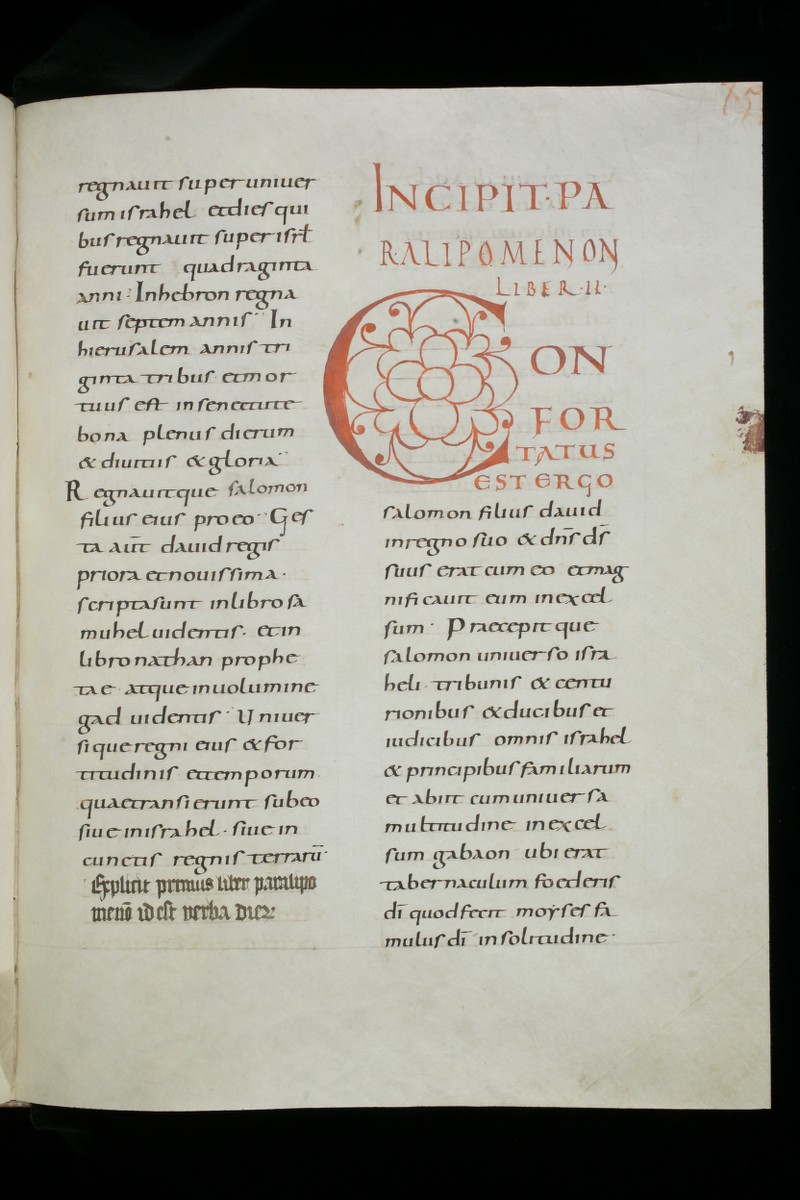 regnauit super uniuer
sum israhel et dies qui
bus regnauit super isrł
fuerunt quadraginta
anni· In hebron regna
uit septem annis· In
hierusalem annis tri
ginta tribus et mor
tuus est in senectute
bona plenus dierum
& diuitiis & gloria·
Regnauitque salomon
filius eius pro eo· Ges
ta aūt dauid regis
priora et nouissima·
scripta sunt in libro sa
muhel uidentis· et in
libro nathan prophe
tae atque in uolumine
gad uidentis· Uniuer
sique regni eius & for
titudinis et temporum
quae transierunt sub eo
siue in israhel· siue in
cunctis regnis terrarū·
Explicit primus liber paralipo
menō id est verba dierꝝ
INCIPIT·PA
RALIPOMENON
LIBER·II·
CON
FOR
TATUS
EST ERGO
salomon filius dauid
in regno suo & dn̄s d̄s
suus erat cum eo et mag
nificauit eum in excel
sum· Praecepitque
salomon uniuerso isra
heli tribunis & centu
rionibus & ducibus et
iudicibus omnis israhel
& principibus familiarum
et abiit cum uniuersa
multitudine in excel
sum gabaon ubi erat
tabernaculum foederis
dī quod fecit moẏses fa
mulus dī in solitudine·